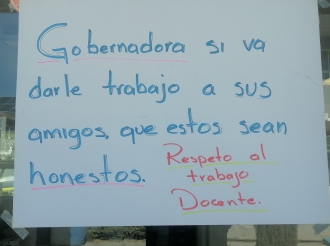 Gobernadora si va
darle trabajo a sus
amigos, que estos sean
honestos.
Respeto al
trabajo
Docente.